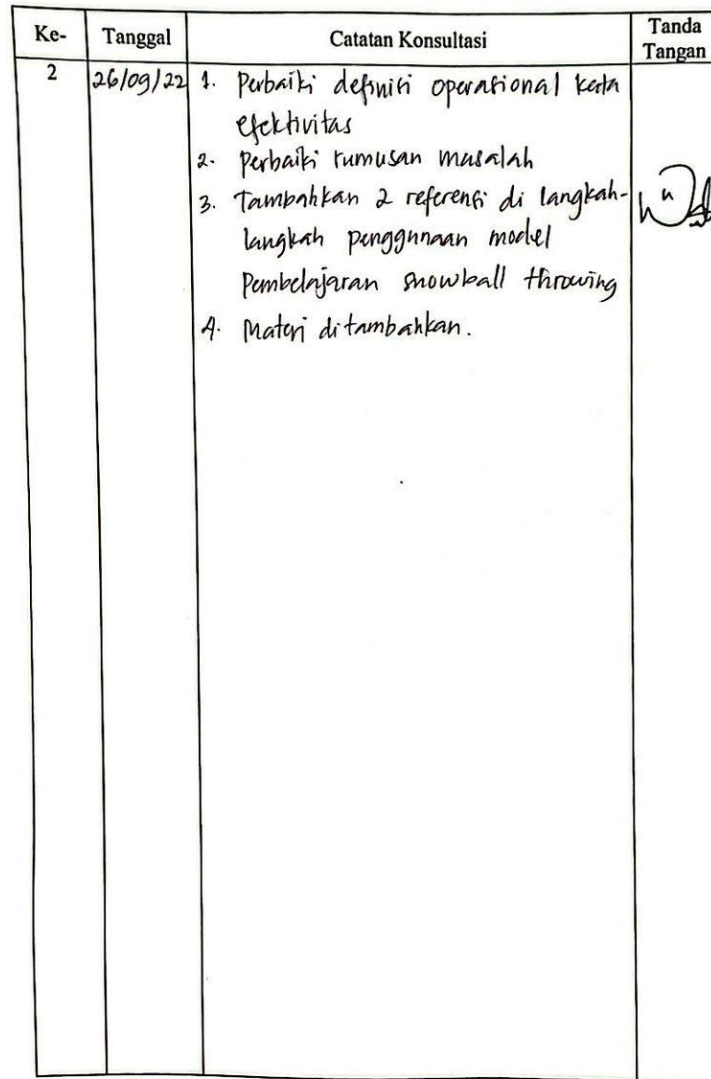 Ke- Tanggal Catatan Konsultasi Tanda Tangan
2 26/09/22 1. Perbaiki definisi operasional kata
efektivitas
2. Perbaiki rumusan masalah
3. Tambahkan 2 referensi di langkah-
langkah penggunaan model
Pembelajaran snowball throwing
4. Materi ditambahkan.